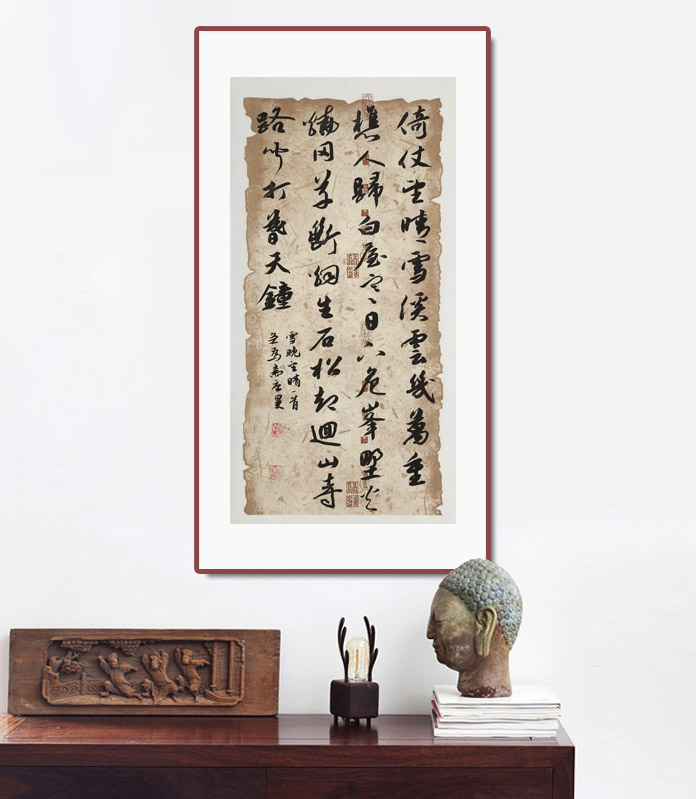 倚仗望晴雪溪雲幾萬重
樵人歸白屋寒日下危峯野火
燒岡草斷烟生石松却迴山寺
路聞打暮天鐘
雪晚望晴一首